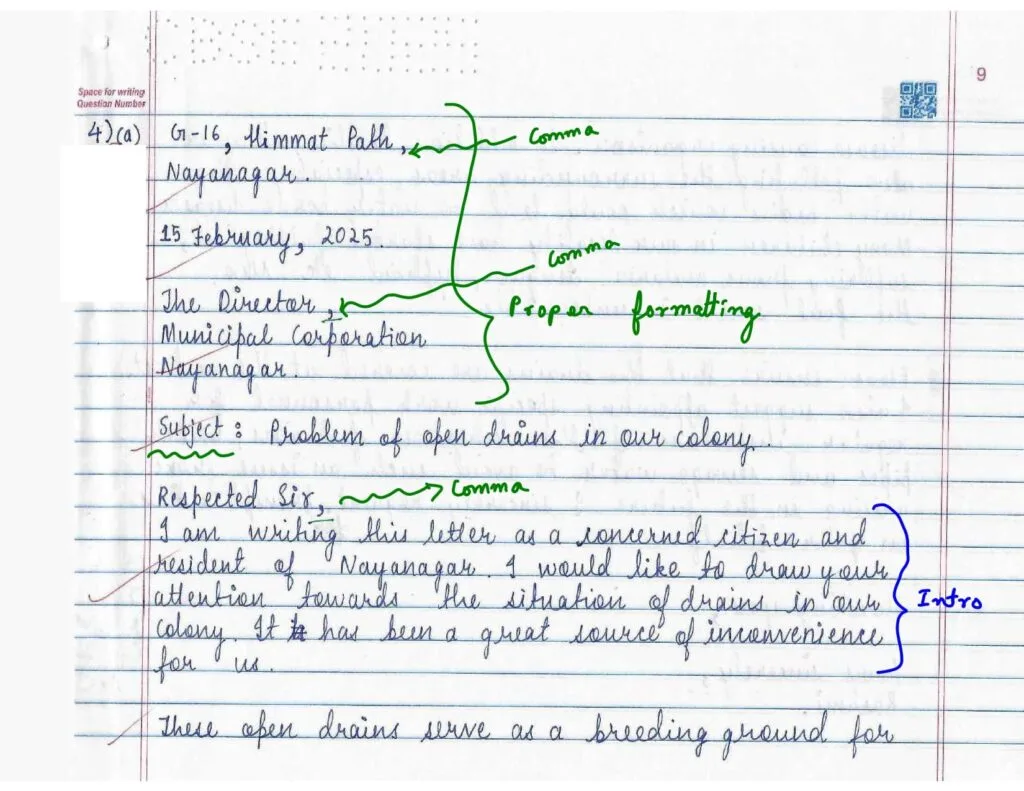 9
Space for writing
Question Number
4)(a) G-16, Himmat Path, Comma
Nayanagar.
15 February, 2025.
Comma
The Director,
Proper formatting
Municipal Corporation
Nayanagar.
Subject: Problem of open drains in our colony.
Respected Sir, Comma
I am writing this letter as a concerned citizen and
resident of Nayanagar. I would like to draw your
attention towards the situation of drains in our
Intro
colony. It has been a great source of inconvenience
for us.
These open drains serve as a breeding ground for